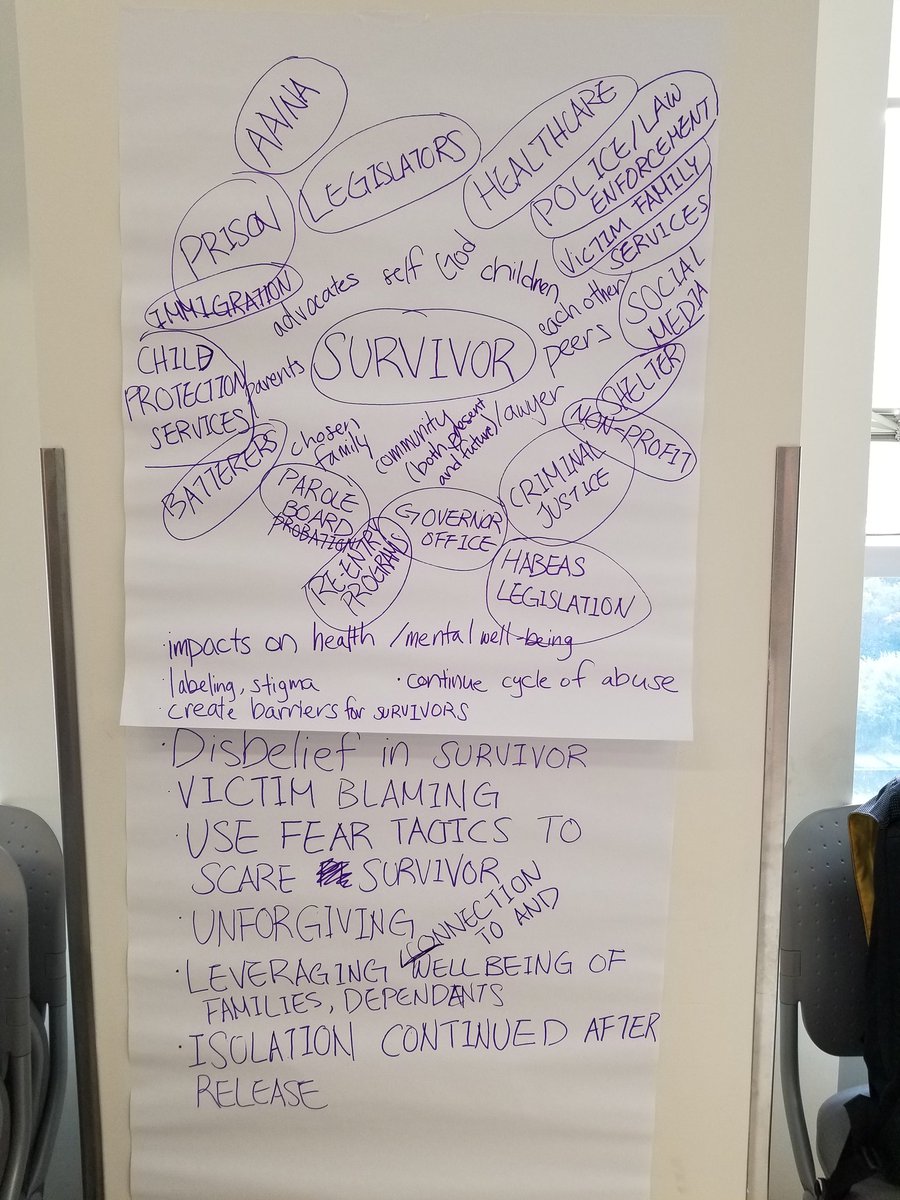 AA/NA
LEGISLATORS
HEALTHCARE
POLICE/LAW
ENFORCEMENT
VICTIM FAMILY
SERVICES
PRISON
IMMIGRATION
advocates self God children
each other
peers
SOCIAL
MEDIA
CHILD
PROTECTION
SERVICES
parents
SURVIVOR
SHELTER
NON-PROFIT
BATTERERS
chosen
family
community
(both present
and future)
/lawyer
PAROLE
BOARD
PROBATION
RE-ENTRY
PROGRAMS
GOVERNOR
OFFICE
CRIMINAL
JUSTICE
HABEAS
LEGISLATION
·impacts on health /mental well-being
·labeling, stigma
·continue cycle of abuse
·create barriers for SURVIVORS
·Disbelief in SURVIVOR
·VICTIM BLAMING
·USE FEAR TACTICS TO
SCARE SURVIVOR
·UNFORGIVING
CONNECTION
TO AND
·LEVERAGING WELL BEING OF
FAMILIES, DEPENDANTS
·ISOLATION CONTINUED AFTER
RELEASE